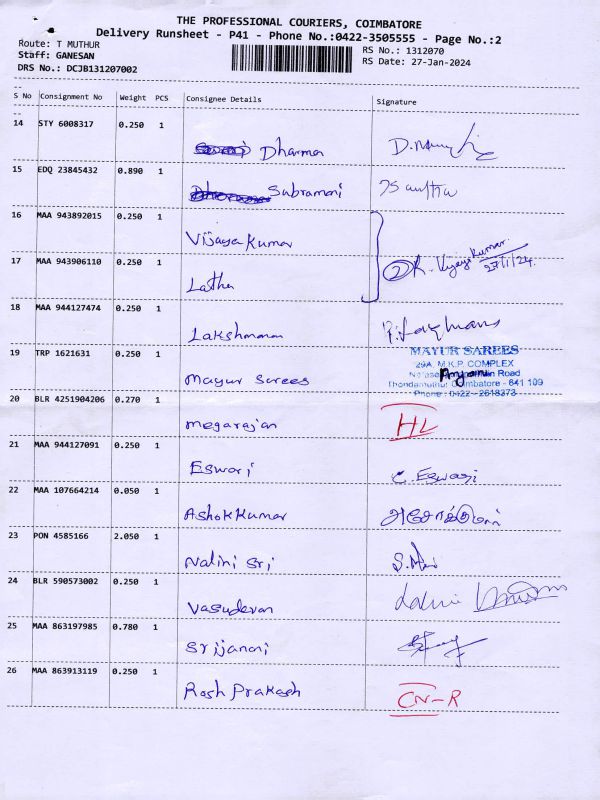 THE PROFESSIONAL COURIERS, COIMBATORE
Delivery Runsheet - P41 - Phone No.:0422-3505555 - Page No.:2
Route: T MUTHUR RS No.: 1312070
Staff: GANESAN RS Date: 27-Jan-2024
DRS No.: DCJB131207002
S No Consignment No Weight PCS Consignee Details Signature
14 STY 6008317 0.250 1
Dharma
15 EDQ 23845432 0.890 1
Subramani
16 MAA 943892015 0.250 1
Vijaya Kumar
17 MAA 943906110 0.250 1
Latha 2 K. Vijaya Kumar 27/1/24.
18 MAA 944127474 0.250 1
Lakshmanan
19 TRP 1621631 0.250 1
Mayur Sarees
MAYUR SAREES
29A, M.K.P. COMPLEX
Road
Thondamuthur Coimbatore - 641 109
Phone : 0422 - 2618373
20 BLR 4251904206 0.270 1
Megarajan HL
21 MAA 944127091 0.250 1
Eswari C. Eswari
22 MAA 107664214 0.050 1
AshokKumar
23 PON 4585166 2.050 1
Nalini Sri
24 BLR 590573002 0.250 1
Vasudevan
25 MAA 863197985 0.780 1
Srijanani
26 MAA 863913119 0.250 1
Rosh Prakash CN-R